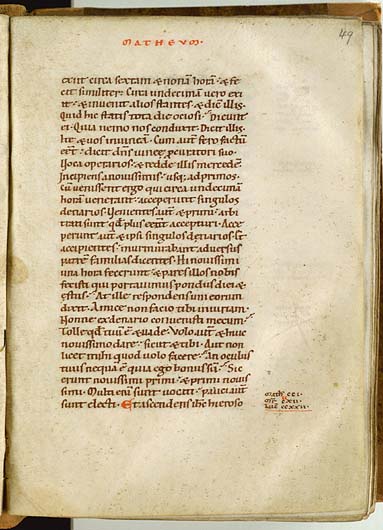 49
MATHEUM·
exiit circa sextam & nonam horā· & fe
cit similiter· Circa undecimam vero exi
it· & invenit alios stantes· & dic̄ illis·
Quid hic statis tota die ociosi· Dicunt
ei· Quia nemo nos conduxit· Dicit illis·
Ite & vos in vineā· Cum aut̄ sero factū
eēt· dicit dn̄s vineę procuratori suo·
Voca operarios & redde illis mercedē
incipiens a novissimis usq; ad primos·
Cū venissent ergo qui circa undecimā
horā venerant· acceperunt singulos
denarios· Venientes aut̄ & primi· arbi
trati sunt qd̄ plus eēnt accepturi· Acce
perunt aut̄ & ipsi singulos denarios· Et
accipientes· murmurabant adversus
patrē familias dicentes· Hi novissimi
una hora fecerunt· & pares illos nobis
fecisti qui portavimus pondus diei &
ęstus· At ille respondens uni eorum
dixit· Amice non facio tibi iniuriam·
Nonne ex denario convenisti mecum·
Tolle qd̄ tuū ē & vade· Volo aut̄ & huic
novissimo dare· sicut & tibi· Aut non
licet mihi quod volo facere· An oculus
tuus nequā ē quia ego bonus sū· Sic
erunt novissimi primi· & primi novis
simi· Multi enī sunt vocati· pauci aut̄
sunt electi· Et ascendens ih̄c hieroso
Math̄ CCI·
CXII·
CCXXII·